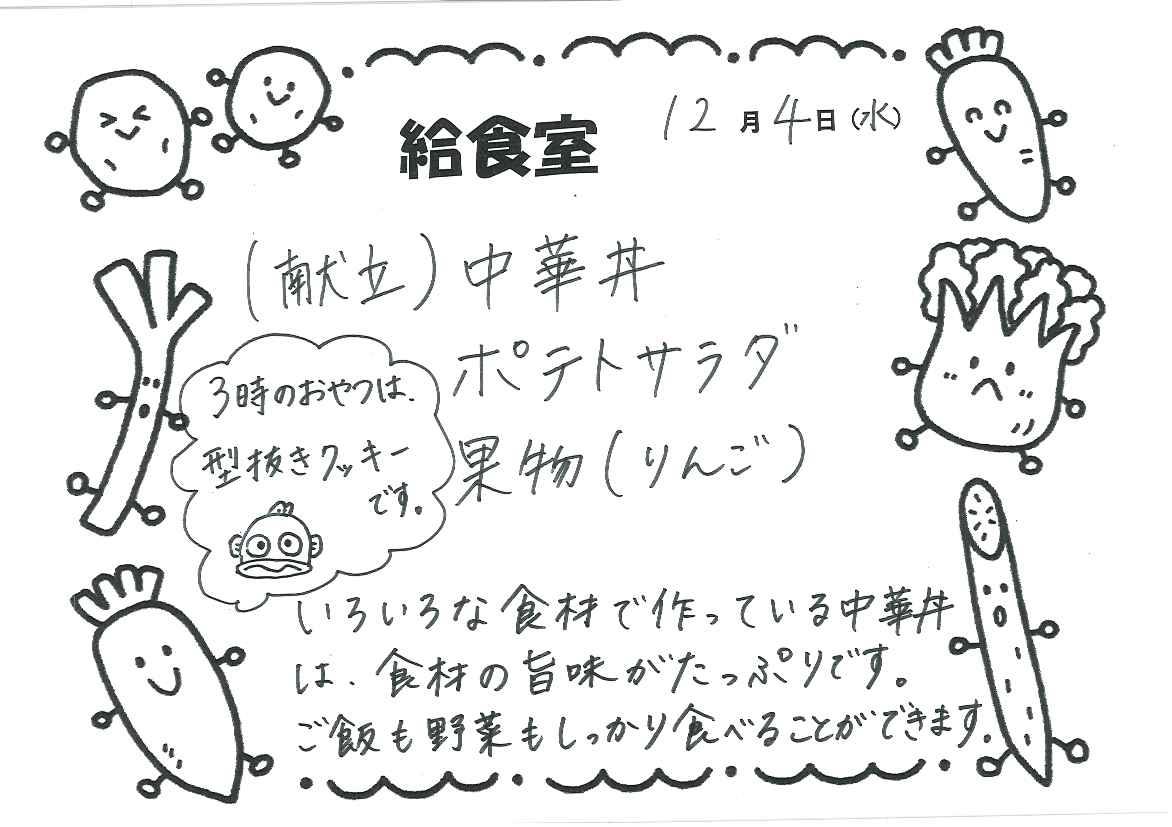 給食室
12月4日(水)
(献立)中華丼
ポテトサラダ
果物(りんご)
3時のおやつは、
型抜きクッキー
です。
いろいろな食材で作っている中華丼
は、食材の旨味がたっぷりです。
ご飯も野菜もしっかり食べることができます。